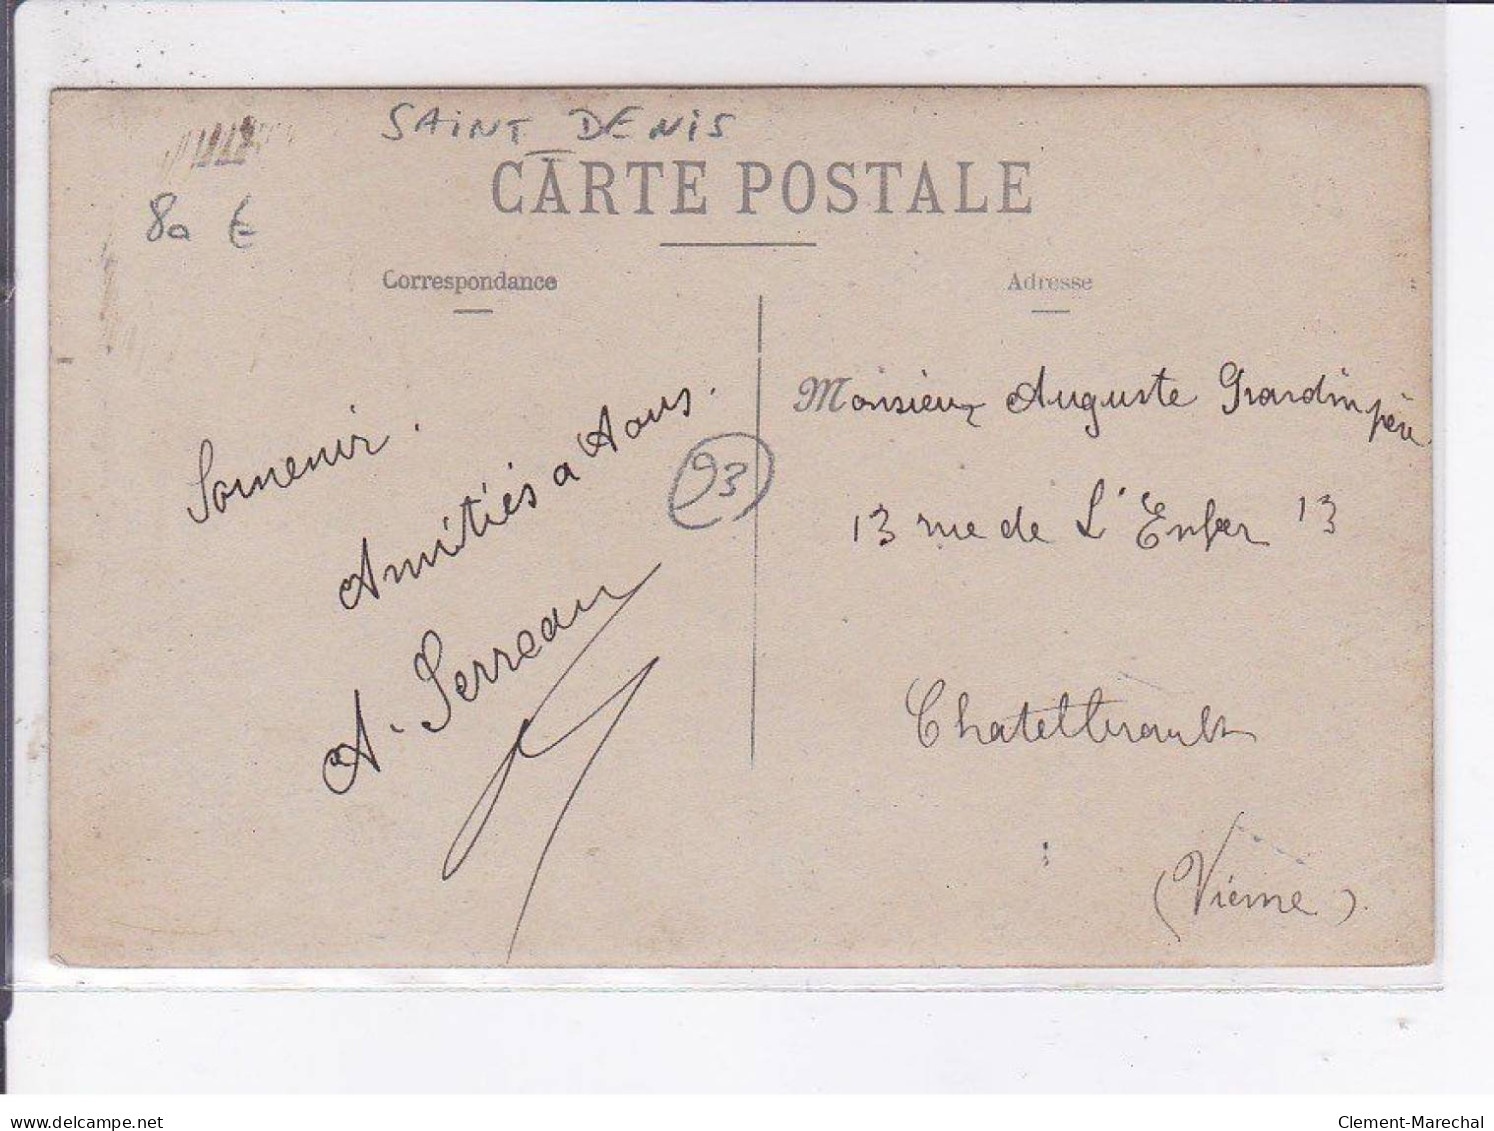 SAINT DENIS
80 €
CARTE POSTALE
Correspondance
Adresse
Souvenir.
Amitiés a tous.
A. Serreau
93
Monsieur Auguste Grardin père
13 rue de L'Enfer 13
Chatellerault
(Vienne).
www.delcampe.net
Clement-Marechal